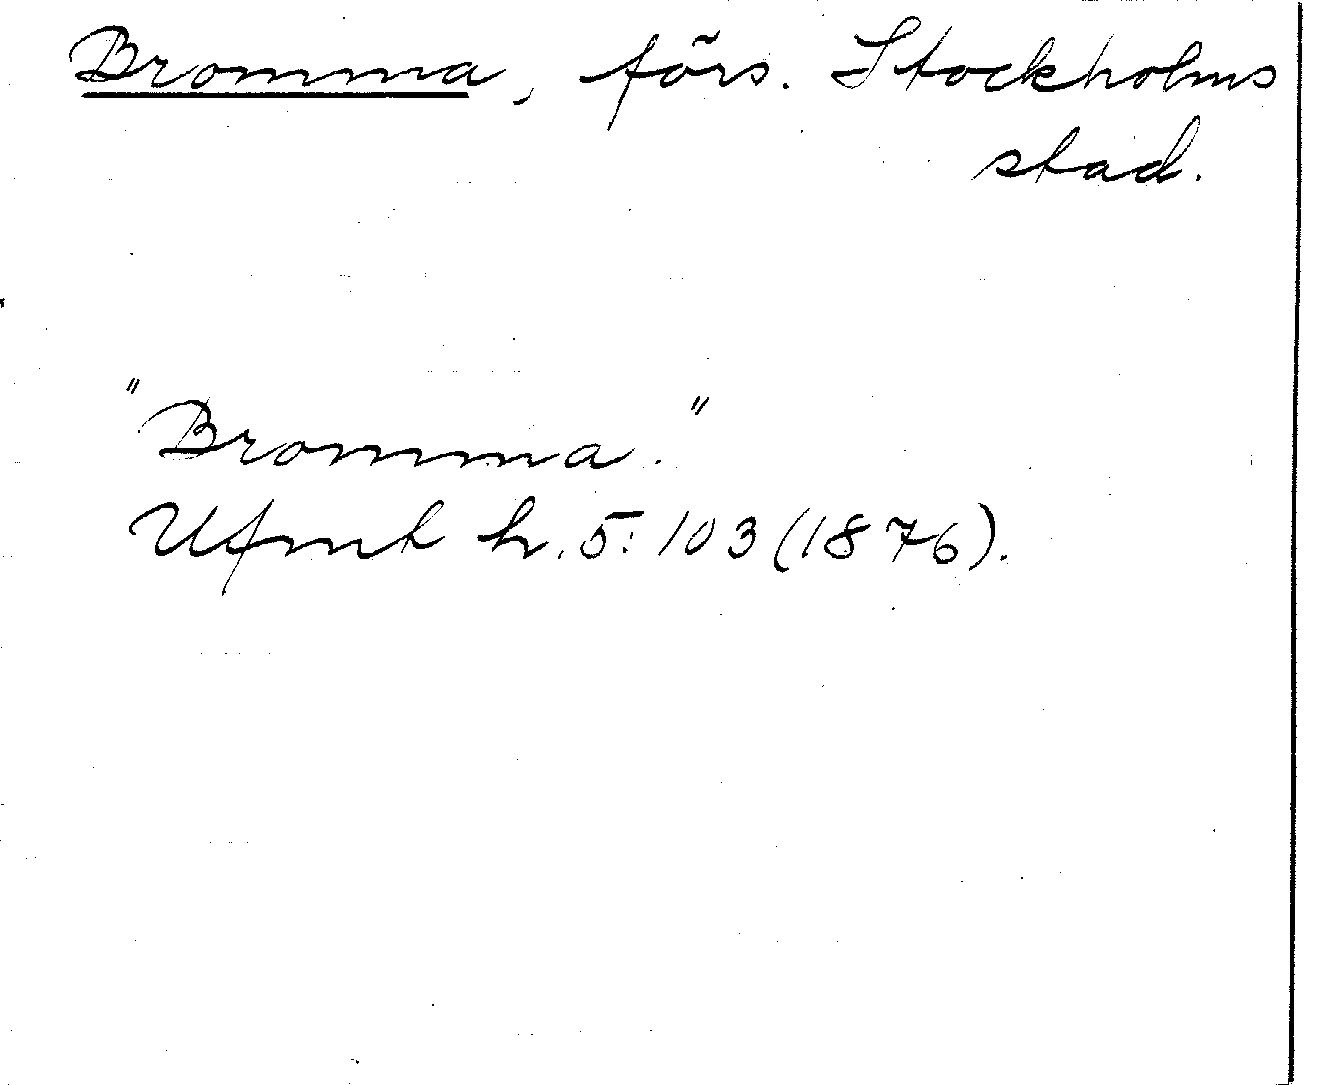 Bromma, förs. Stockholms
stad.
"Bromma."
Ufmt h. 5: 103 (1876).